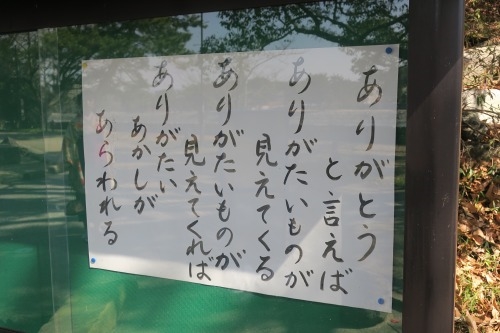 ありがとう
と言えば
ありがたいものが
見えてくる
ありがたいものが
見えてくれば
ありがたい
あかしが
あらわれる